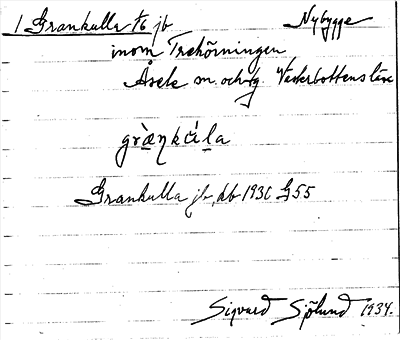 1 Grankulla 1/6 jb Nybygge
inom Trehörningen
Åsele sn och tg Västerbottens län
grànkúla
Grankulla jb, db 1930 G55
Sigurd Sjölund 1934.